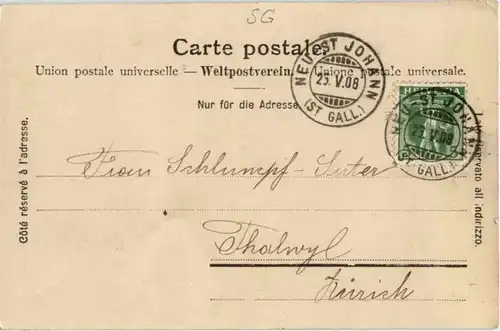 SG
Carte postale.
Union postale universelle — Weltpostverein. — Unione postale universale.
Nur für die Adresse.
NEU ST JOHANN
25.V.08
(ST. GALL.)
HELVETIA
NEU ST JOHANN
25.V.08
(ST. GALL.)
Côté réservé à l'adresse.
Lato riservato all'indirizzo.
Frau Schlumpf-Suter
Thalwyl
Zürich